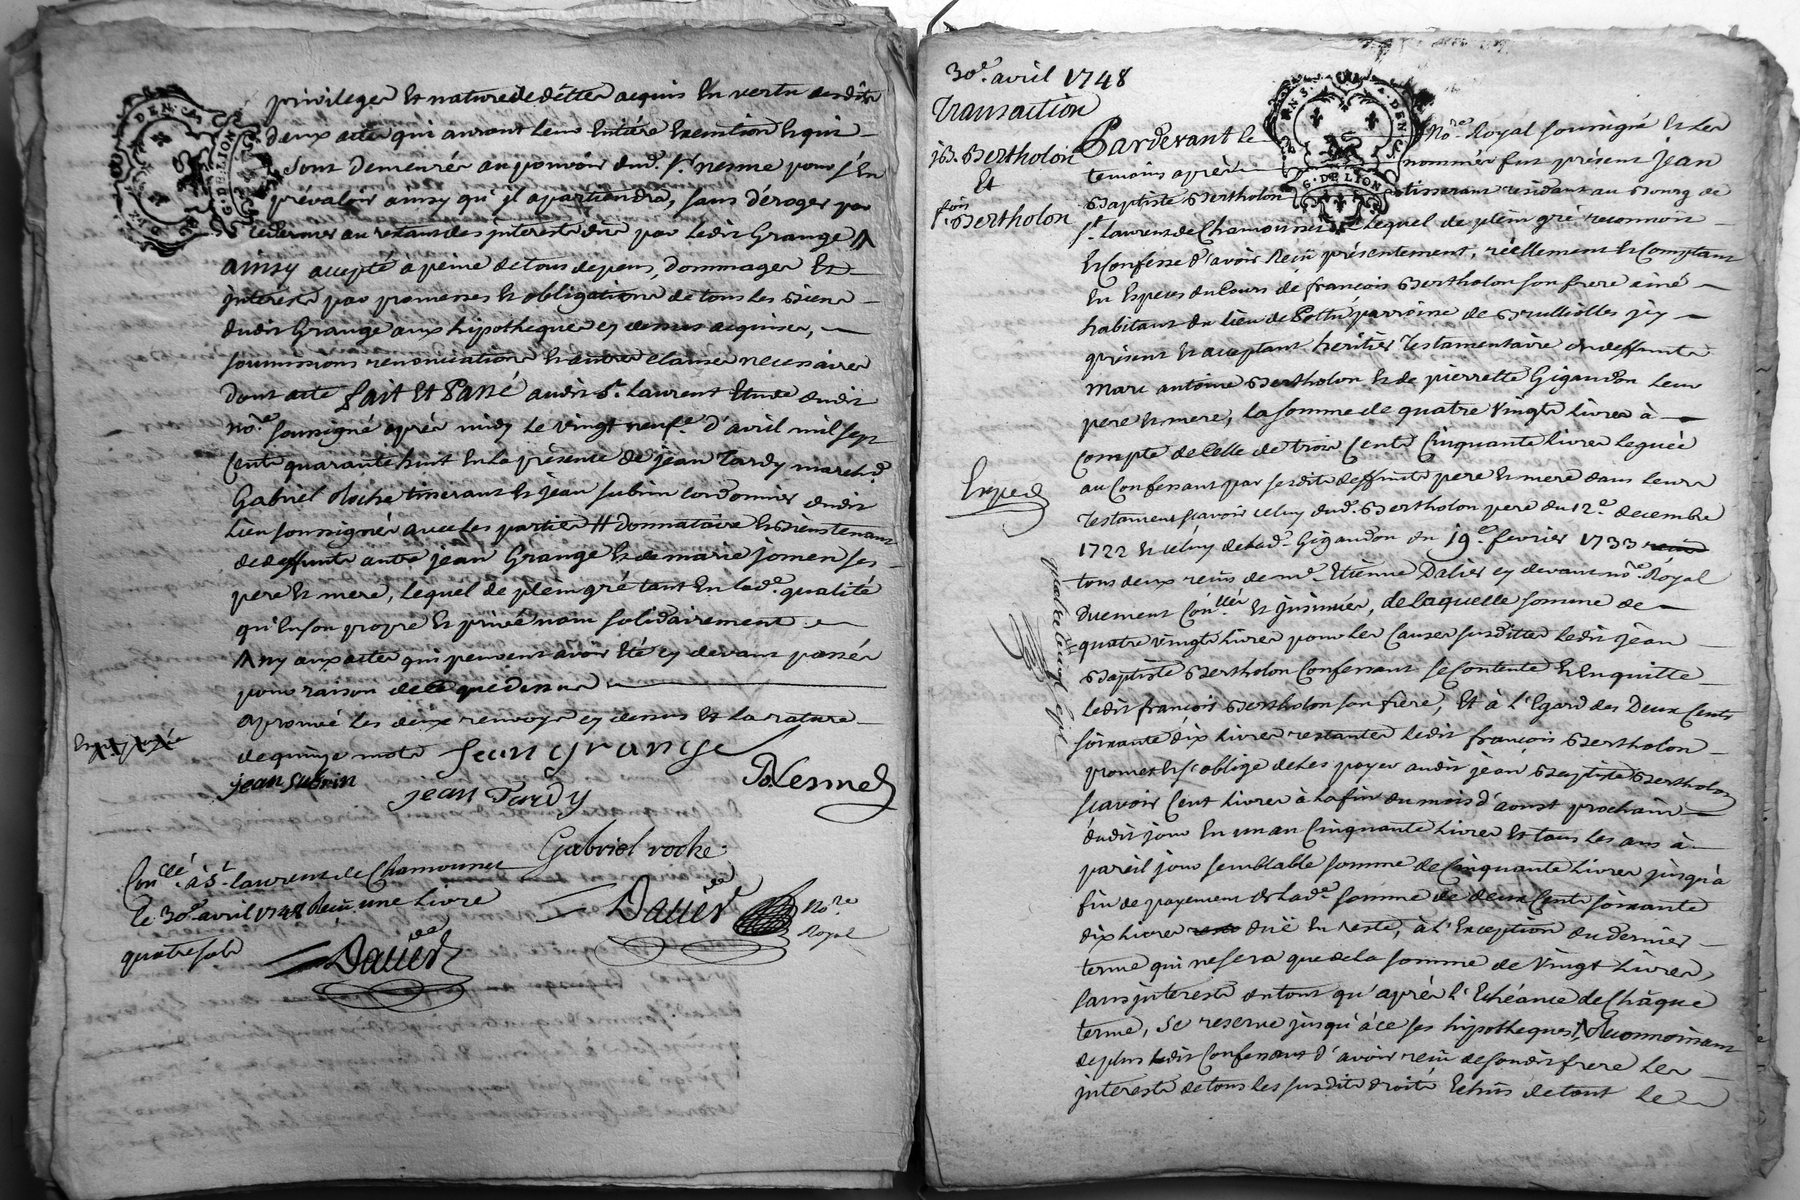 privileges et nature de dettes acquis en vertu desdits
deux actes qui auront leur entière exemtion et qui
sont demeurés au pouvoir dud. Sr. nesme pour s'en
prévaloir ainsy qu'il apartiendra, sans déroger par
au restant des interests dûs par ledit Grange
ainsy accepté à peine de tous depens, dommages et
interests par promesses et obligations de tous les biens
dudit Grange aux hipotheques cy dessus acquises,
soumissions renonciations et autres clauses necessaires
Dont acte fait et Passé audit St. Laurent Etude dudit
nore. soussigné après midy le vingt neufe. d'avril mil sept
cents quarante huit en la présence de jean Tardy marchd.
Gabriel Roche tisserant et jean subrin cordonnier dudit
lieu soussignés avec les parties # donnataire et bientenant
de deffunts autre jean Grange et de marie jomen ses
pere et mere, lequel de plein gré tant en lade. qualité
qu'en son propre et privé nom solidairement
ny aux actes qui peuvent avoir été cy devant passés
pour raison de ce que dessus
aprouvé les deux renvoys cy dessus et la rature
de quinze mots jean grange
jean subrin
B Nesme
jean Tardy
Gabriel roche
Conllé. à St. laurent de Chamousset
le 30e. avril 1748 Reçu une livre
quatre sols
Dalier
Dalier
No.re
Royal
DEN.
G. DE LYON
30e. avril 1748
Transaction
jb. Bertholon
Et
fois
f. Bertholon
Pardevant le
No.re Royal soussigné et les
temoins après
nommés fut présent jean
Baptiste Bertholon
tisserant residant au Bourg de
St. laurent de Chamousset
lequel de plein gré reconnoit
et Confesse d'avoir Reçu présentement, réellement et Comptant
en Espèces du Cours de françois Bertholon son frere ainé
habitant du lieu de Pothu parroisse de Brullioles icy
présent et acceptant heritier Testamentaire de deffunts
Marc antoine Bertholon et de pierrette Gigandon leur
pere et mere, la somme de quatre vingts livres à
compte de Celle de trois Cents Cinquante livres leguée
au Confessant par sesdits deffunts pere et mere dans leurs
Testaments scavoir celuy dud. Bertholon pere du 12e. decembre
1722 et celuy de lad. Gigandon du 19e. fevrier 1733
tous deux reçus de me. Etienne Dalier cy devant nore. Royal
Duement Conllés et jnsinués, de laquelle somme de
quatre vingts livres pour les Causes susdittes ledit jean
Baptiste Bertholon Confessant se Contente et Enquitte
ledit françois Bertholon son frere, Et à l'Egard des Deux Cents
soixante dix livres restantes ledit françois Bertholon
promet et s'oblige de les payer audit jean Baptiste Bertholon
scavoir Cent livres à la fin du mois d'aoust prochain
dudit jour En un an Cinquante livres et tous les ans à
pareil jour semblable somme de Cinquante livres jusqu'à
fin de payement de lade. somme de deux Cents soixante
dix livres dûë en reste, à l'Exception du dernier
terme qui ne sera que de la somme de Vingt livres,
sans interests du tout qu'après l'Echéance de Chaque
terme, se reserve jusqu'à ce ses hipotheques, Reconnoissant
de plus ledit Confessant d'avoir reçu de sondit frere les
jnterests de tous les susdits droits Echûs de tout le
Exped
quatre vingt sept
G. DE LYON